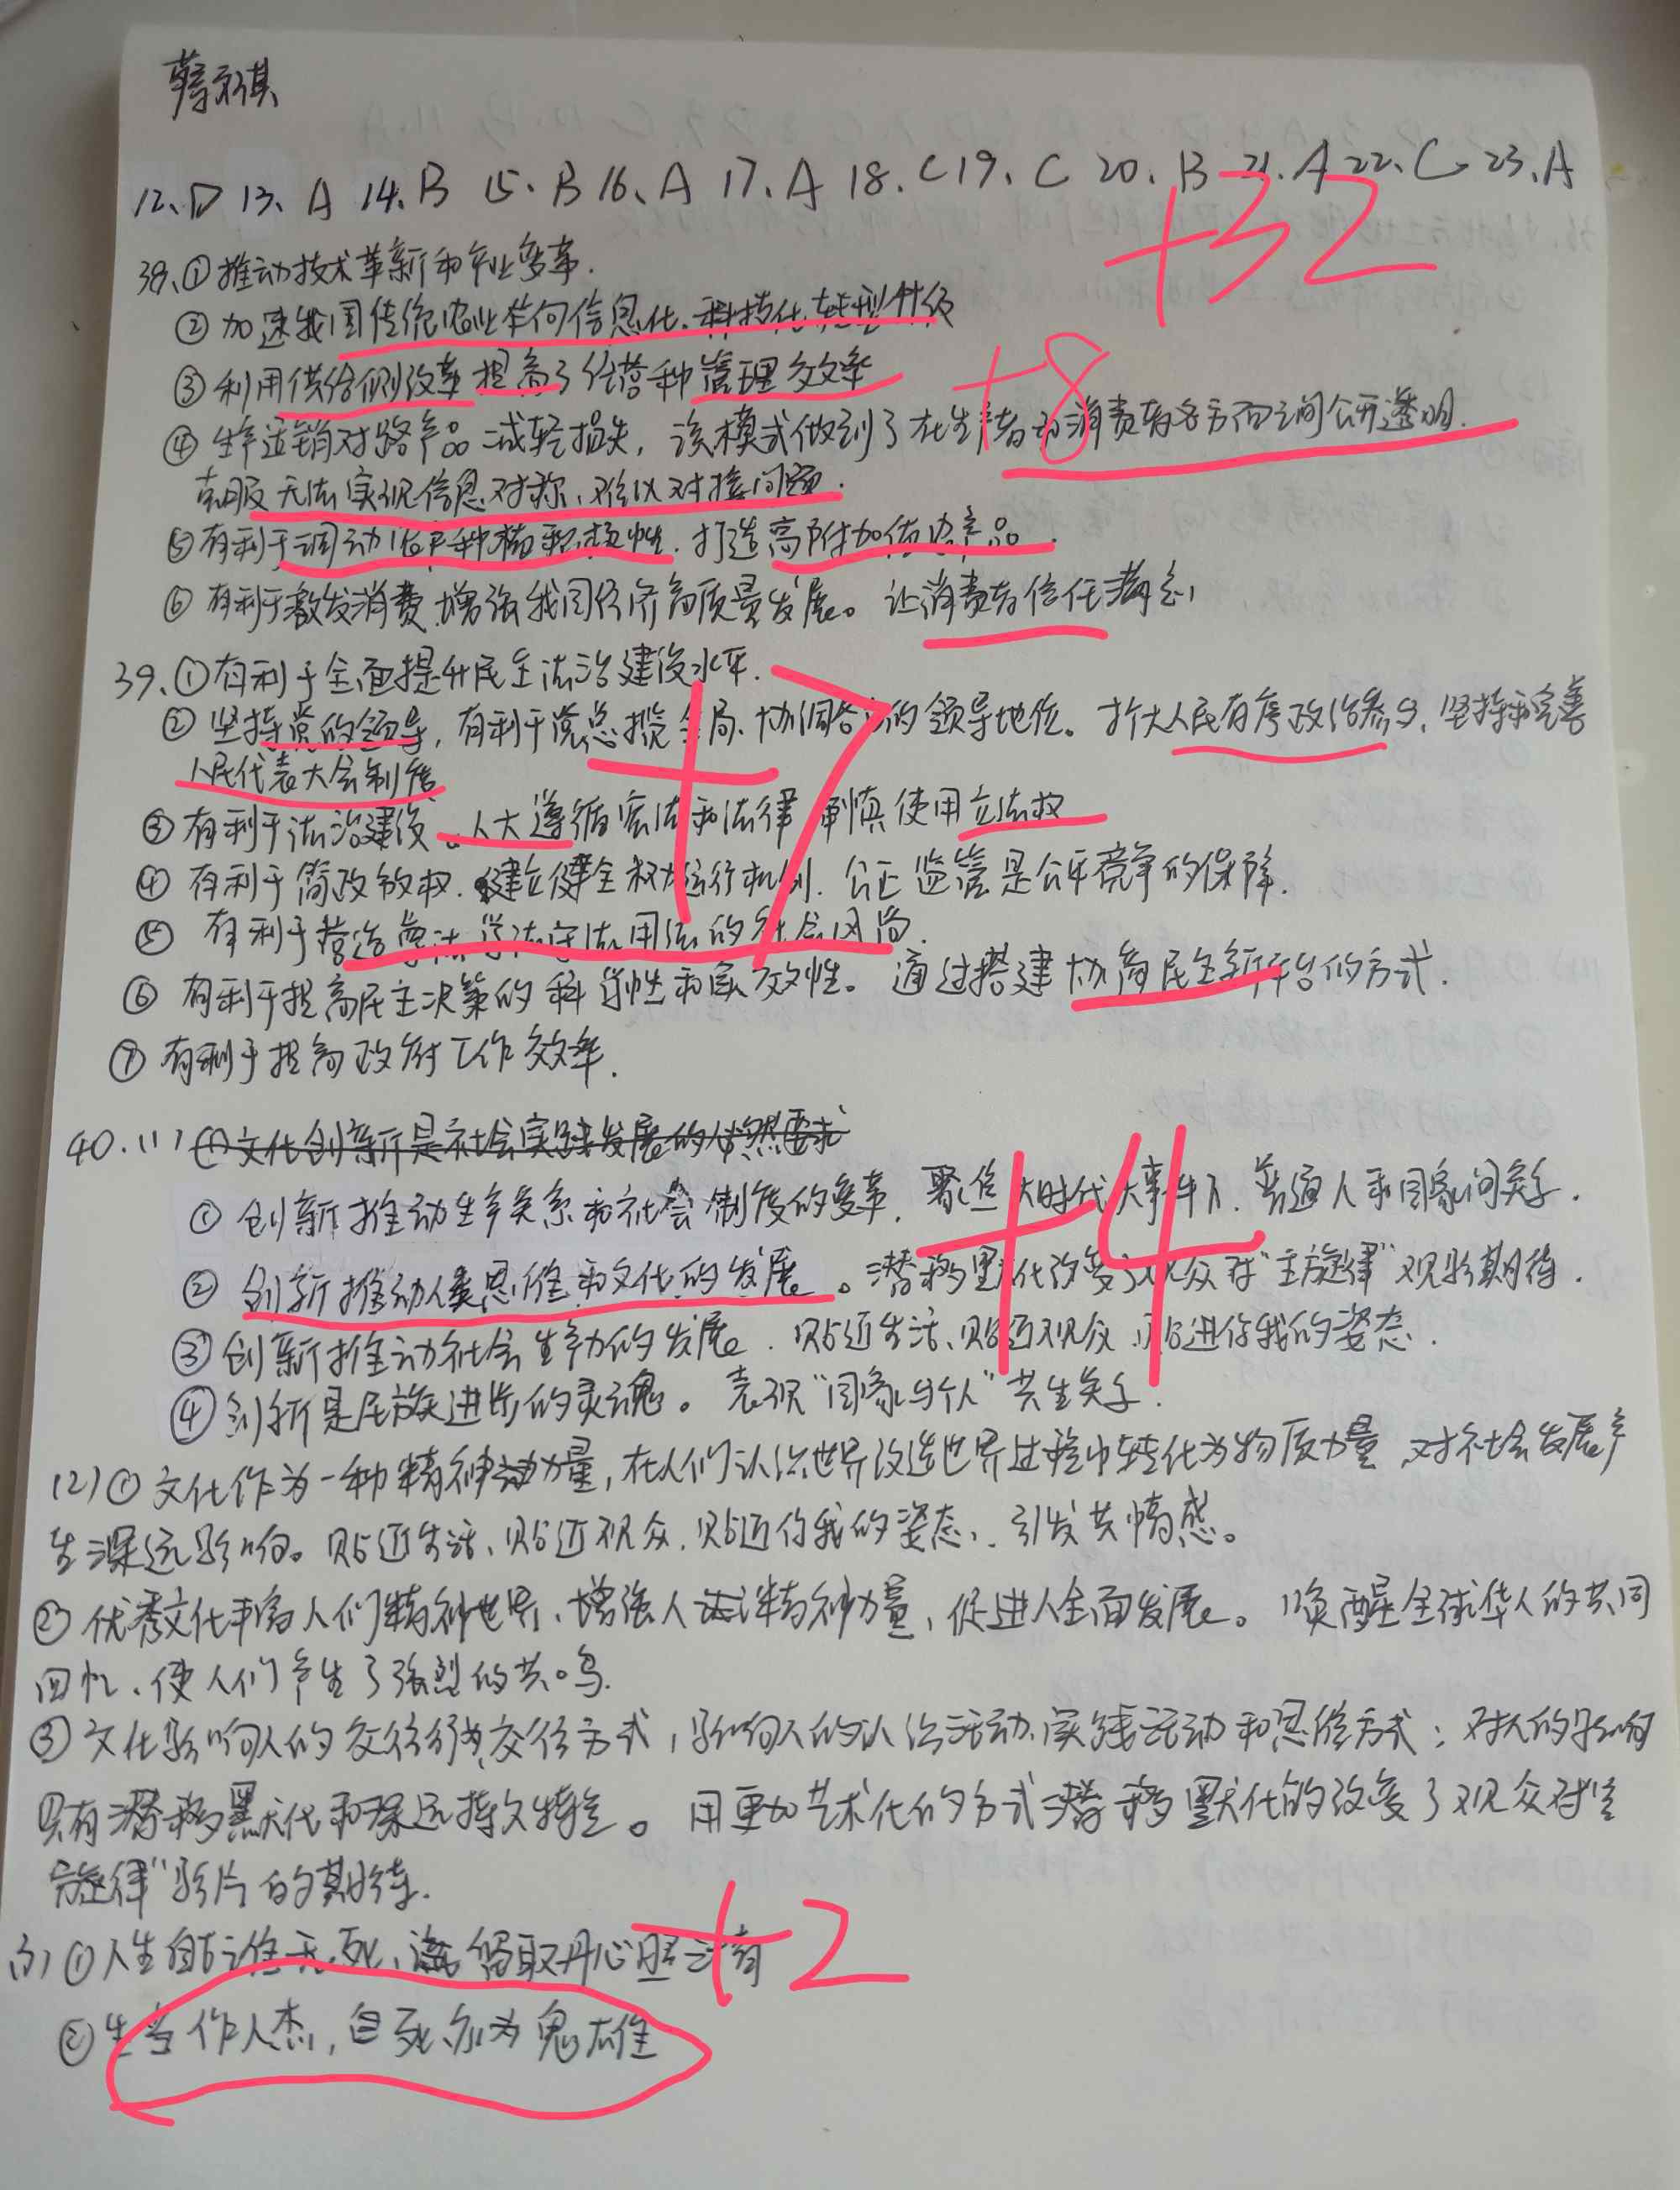 12、D 13、A 14、B 15、B 16、A 17、A 18、C 19、C 20、B 21、A 22、C 23、A
+32
38、①推动技术革新和产业变革.
②加速我国传统农业走向信息化、科技化转型升级
③利用供给侧改革提高了经营和管理效率
+8
④生产适销对路产品 减轻损失，该模式做到了在生产者与消费者各方面之间公开透明.
克服无法实现信息对称、难以对接问题.
⑤有利于调动农户种植积极性.打造高附加值农产品.
⑥有利于激发消费.增强我国经济高质量发展。让消费者信任满意
39、①有利于全面提升民主法治建设水平.
+7
②坚持党的领导，有利于党总揽全局、协调各方的领导地位。扩大人民有序政治参与，坚持和完善
人民代表大会制度
③有利于法治建设。人大遵循宪法和法律 审慎使用立法权
④有利于简政放权.建立健全权力运行机制.公正监管是公平竞争的保障.
⑤有利于营造尊法学法守法用法的社会风尚.
⑥有利于提高民主决策的科学性和实效性。通过搭建协商民主新平台的方式.
⑦有利于提高政府工作效率.
40.(1)①文化创新是社会实践发展的必然要求
①创新推动生产关系和社会制度的变革，聚焦大时代大事件下.普通人和国家间关系.
+4
②创新推动人类思维和文化的发展。潜移默化改变了观众对“主旋律”观影期待.
③创新推动社会生产力的发展.贴近生活、贴近观众.贴近你我的姿态.
④创新是民族进步的灵魂。表现“国家与个人”共生关系.
(2)①文化作为一种精神力量，在人们认识世界改造世界过程中转化为物质力量，对社会发展产
生深远影响。贴近生活、贴近观众.贴近你我的姿态、引发共情感。
②优秀文化丰富人们精神世界、增强人精神力量，促进人全面发展。唤醒全球华人的共同
回忆、使人们产生了强烈的共鸣.
③文化影响人的交往行为交往方式，影响人的认识活动、实践活动和思维方式；对人的影响
具有潜移默化和深远持久特点。用更加艺术化的方式潜移默化的改变了观众对“主
旋律”影片的期待.
(3)①人生自古谁无死，留取丹心照汗青
+2
②生当作人杰，死亦为鬼雄